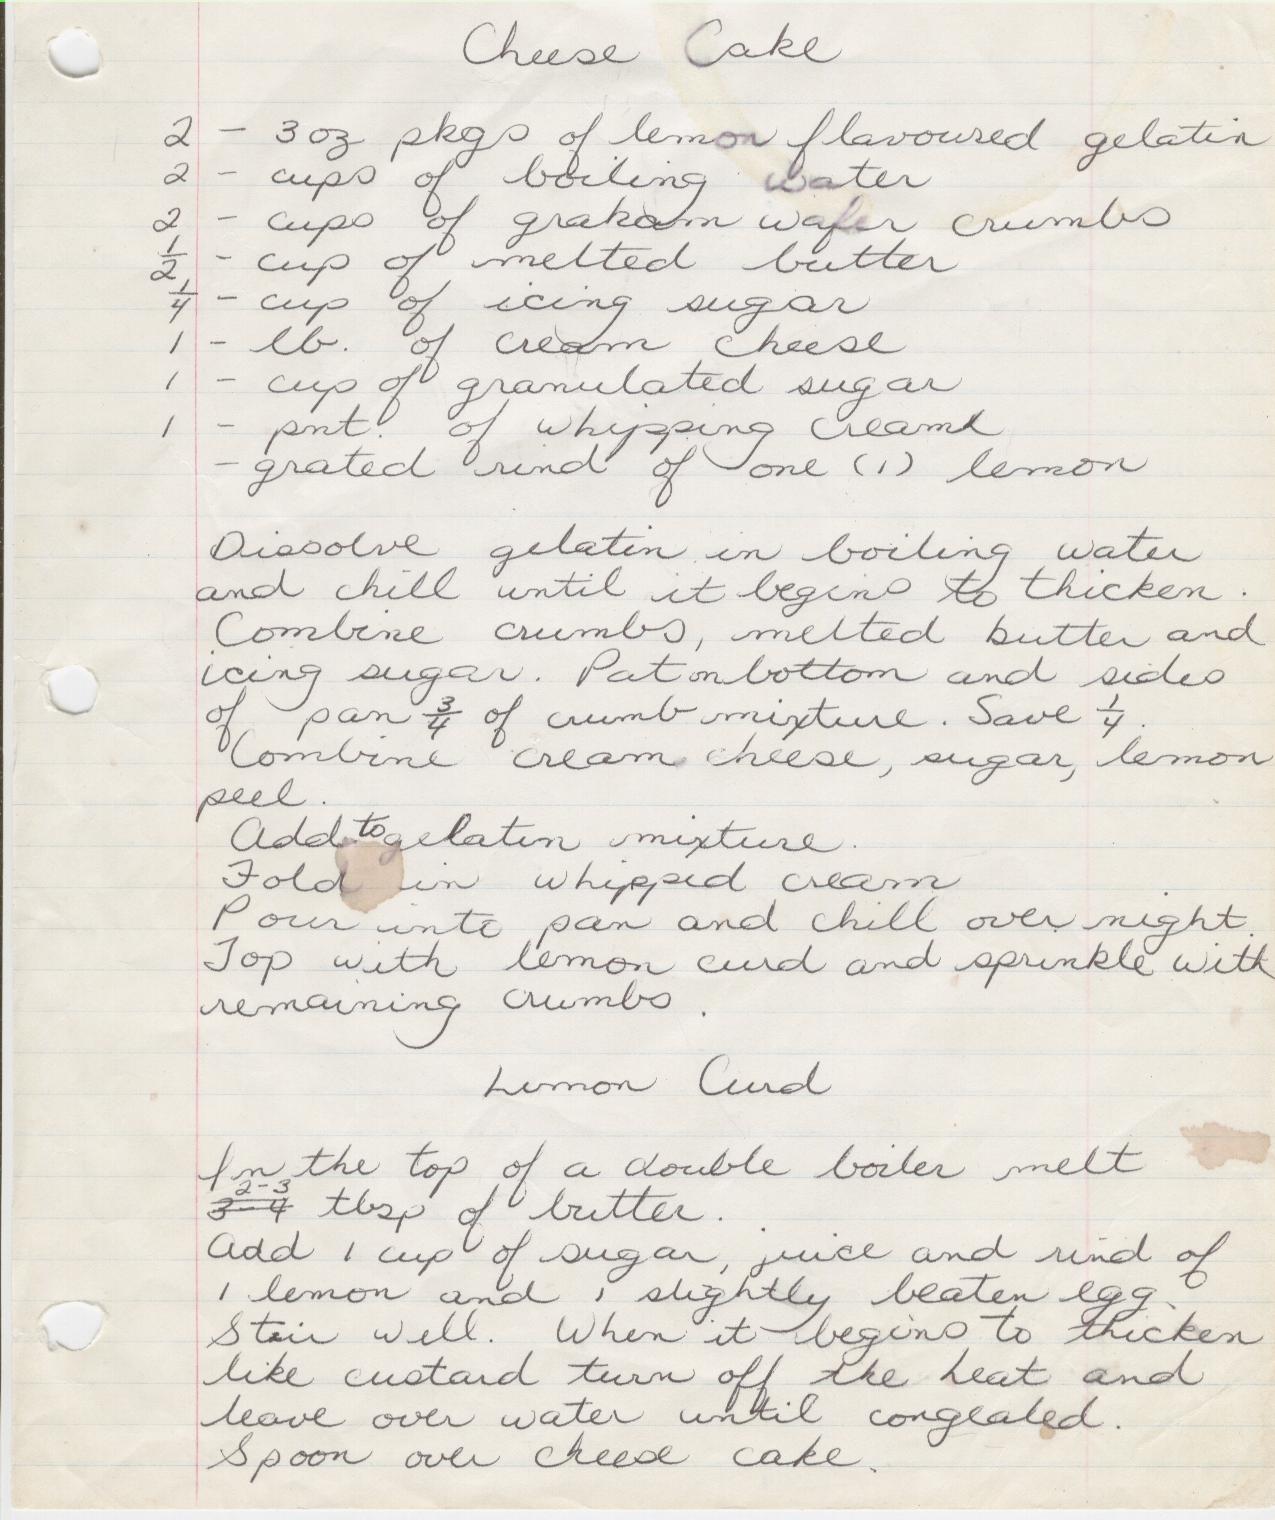 Cheese Cake
2 - 3 oz pkgs of lemon flavoured gelatin
2 - cups of boiling water
2 - cups of graham wafer crumbs
1/2 - cup of melted butter
1/4 - cup of icing sugar
1 - lb. of cream cheese
1 - cup of granulated sugar
1 - pnt. of whipping cream
- grated rind of one (1) lemon
Dissolve gelatin in boiling water
and chill until it begins to thicken.
Combine crumbs, melted butter and
icing sugar. Pat on bottom and sides
of pan 3/4 of crumb mixture. Save 1/4.
Combine cream cheese, sugar, lemon
peel.
Add to gelatin mixture.
Fold in whipped cream
Pour into pan and chill over night.
Top with lemon curd and sprinkle with
remaining crumbs.
Lemon Curd
In the top of a double boiler melt
2-3
3-4 tbsp of butter.
Add 1 cup of sugar, juice and rind of
1 lemon and 1 slightly beaten egg.
Stir well. When it begins to thicken
like custard turn off the heat and
leave over water until congealed.
Spoon over cheese cake.